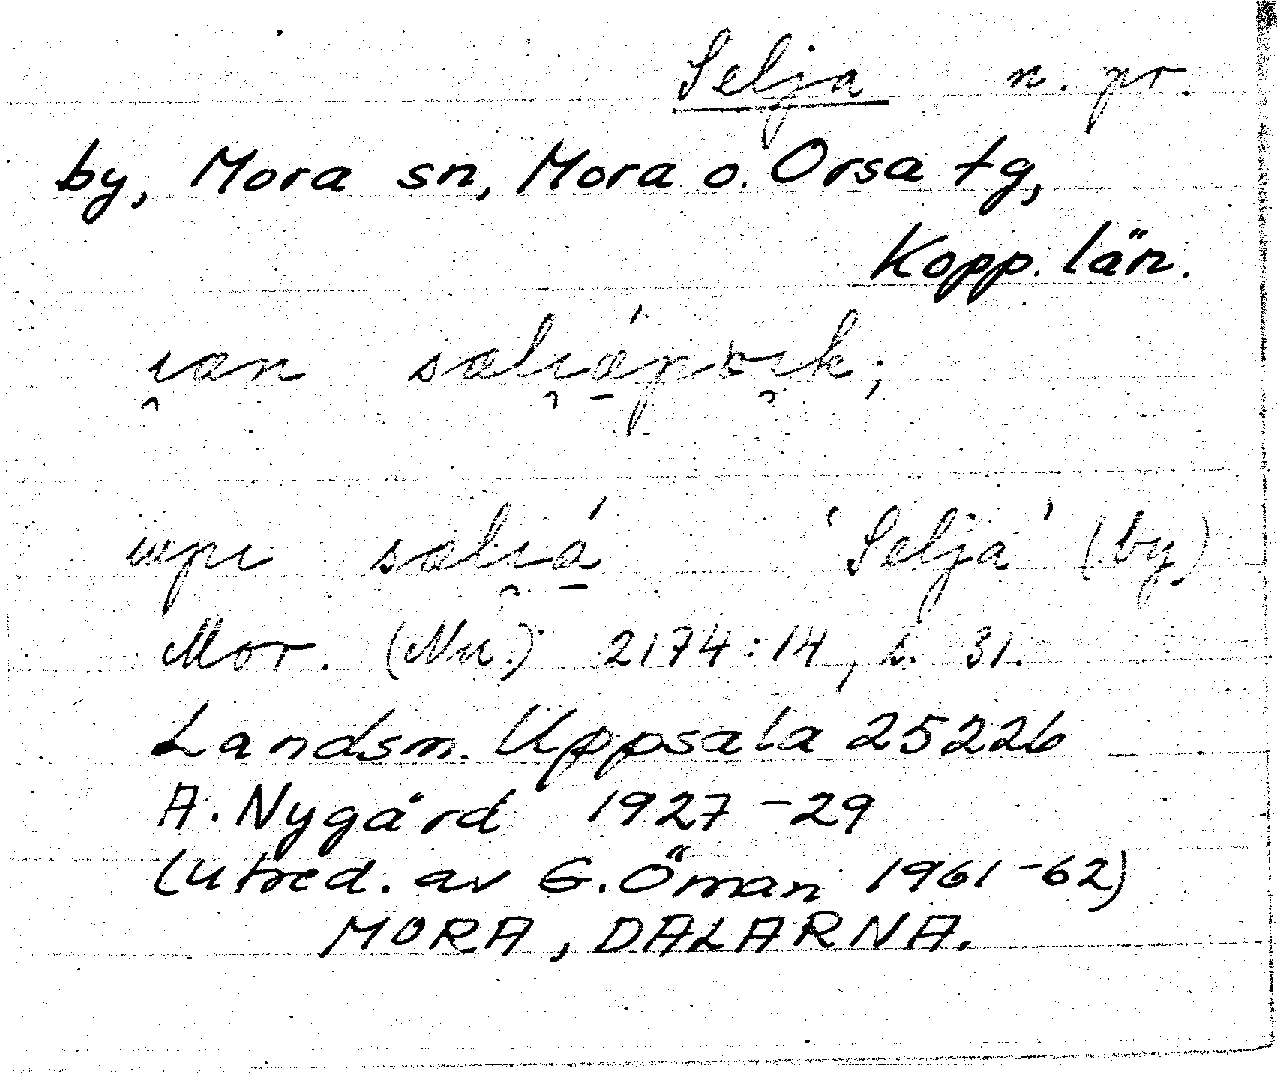 Selja n. pr.
by, Mora sn, Mora o. Orsa tg,
Kopp. län.
ı̯æn sælı̯á̱pɔı̯k;
upı sælı̯á̱ 'Selja' (by)
Mor. (Nu.) 2174:14, s. 31.
Landsm. Uppsala 25226
A. Nygård 1927-29
(utred. av G. Öman 1961-62)
MORA, DALARNA.